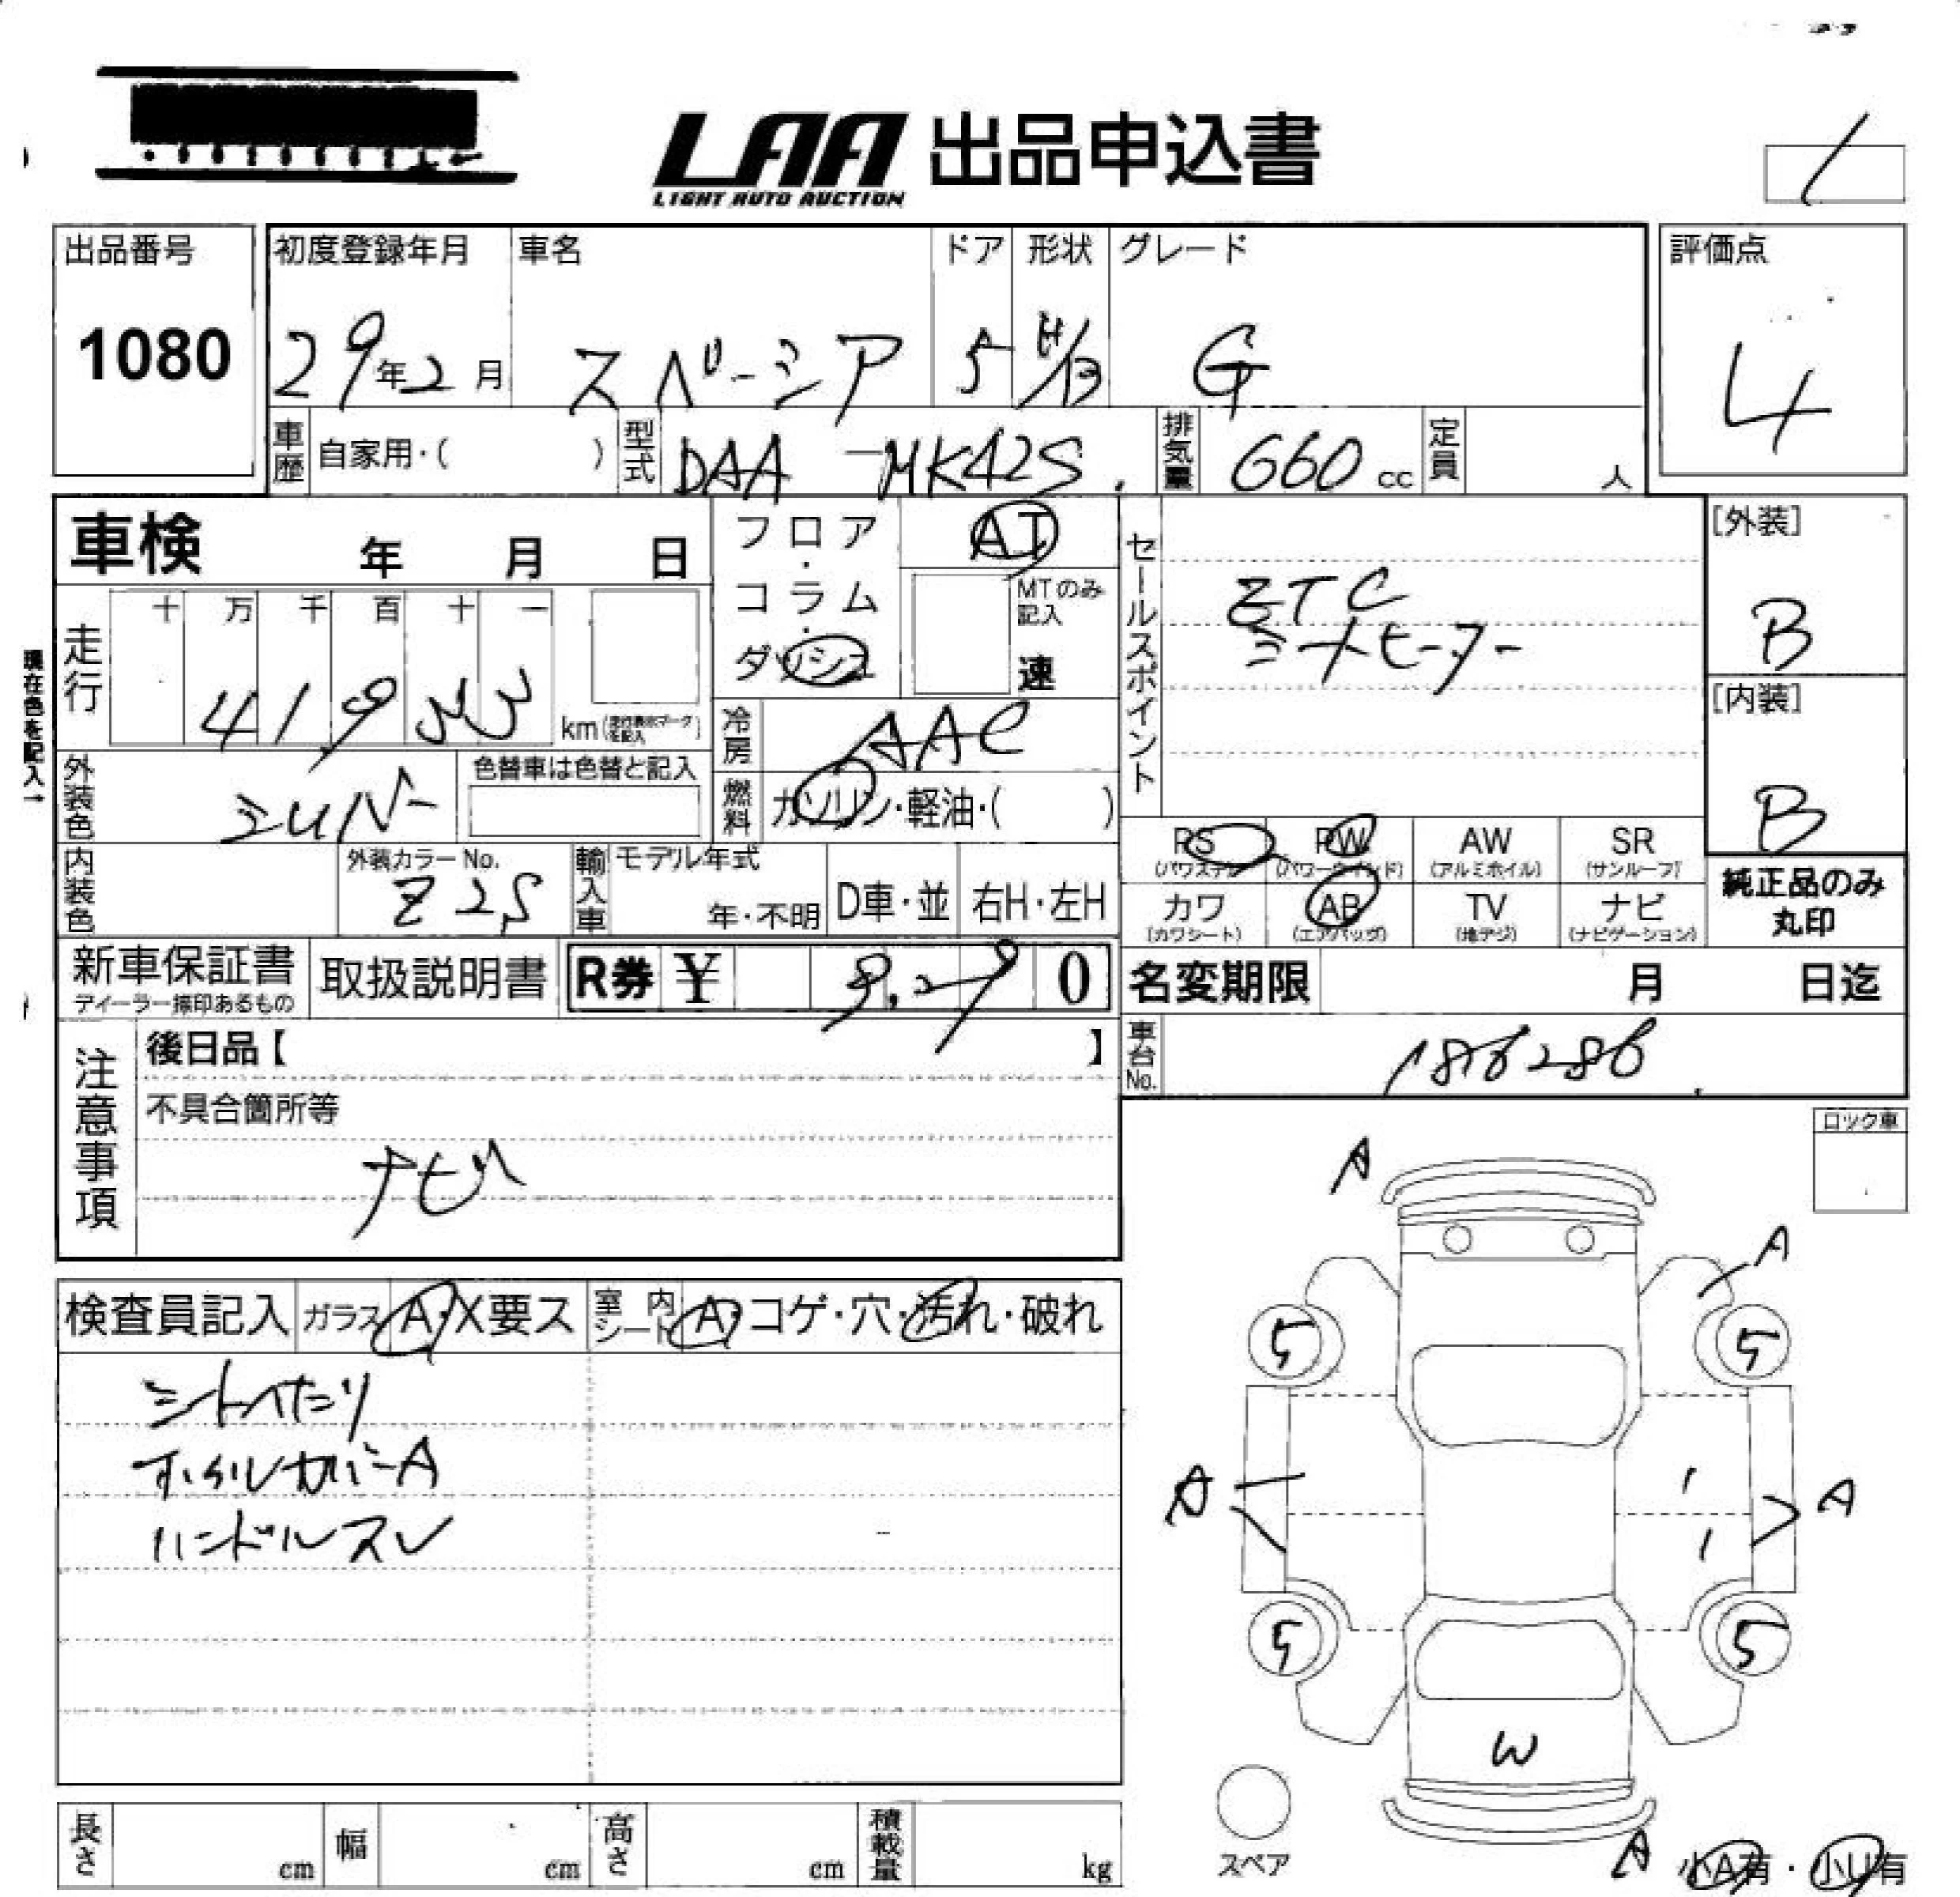 LAA 出品申込書
LIGHT AUTO AUCTION
出品番号
1080
初度登録年月
29年2月
車名
スペーシア
ドア
5
形状
H/B
グレード
G
評価点
4
車歴
自家用・( )
型式
DAA-MK42S
排気量
660 cc
定員
人
車検 年 月 日
現在色を記入→
走行
十 万 千 百 十 一
km(走行表示マークを記入)
外装色
シルバー
色替車は色替と記入
内装色
外装カラーNo.
Z2S
輸入車
モデル年式
年・不明
D車・並
右H・左H
フロア・コラム・ダッシュ
AT
MTのみ記入
速
冷房
AAC
燃料
ガソリン・軽油・( )
セールスポイント
ETC
シートヒーター
[外装]
B
[内装]
B
PS
(パワステ)
PW
(パワーウインド)
AW
(アルミホイル)
SR
(サンルーフ)
カワ
(カワシート)
AB
(エアバッグ)
TV
(地デジ)
ナビ
(ナビゲーション)
純正品のみ
丸印
新車保証書
ディーラー捺印あるもの
取扱説明書
R券 ¥ 0
名変期限 月 日迄
車台No.
186286
注意事項
後日品【 】
不具合箇所等
ナビ
検査員記入
ガラス A・X要ス
室内シート A・コゲ・穴・汚れ・破れ
シートへたり
ホイルカバーA
ハンドルスレ
ロック車
A
A
5
5
A
A
5
5
W
A
スペア
小A有・小U有
長さ cm
幅 cm
高さ cm
積載量 kg